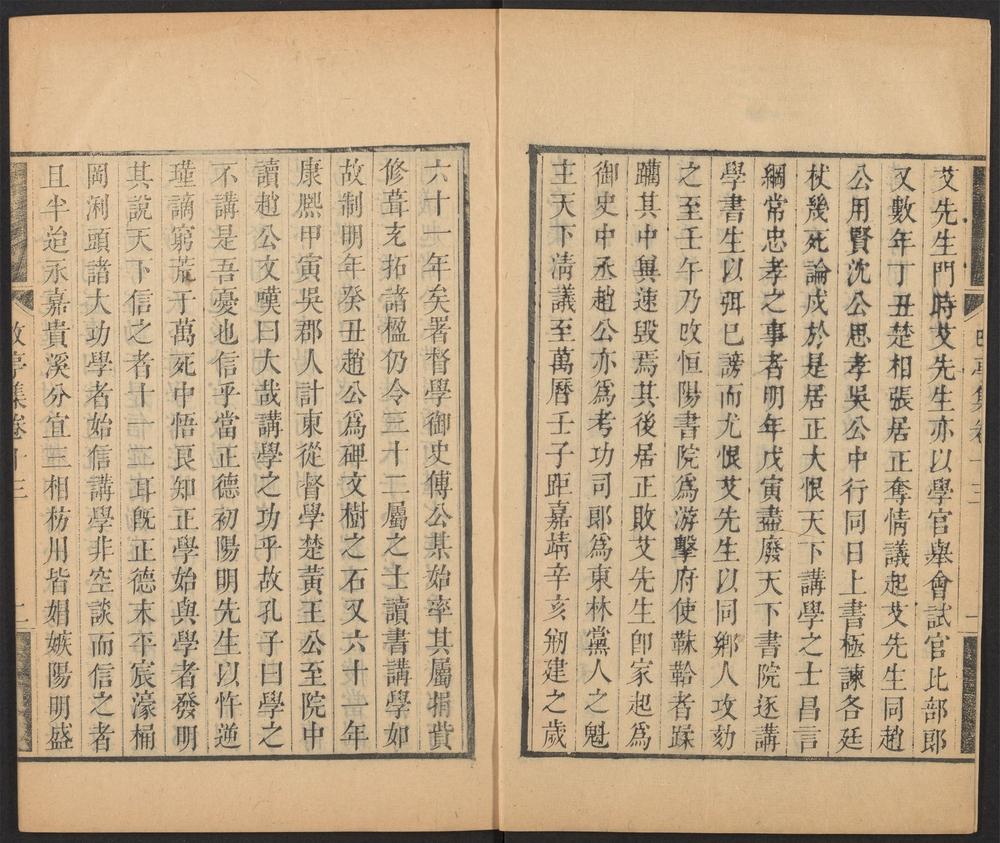 艾先生門時艾先生亦以學官舉會試官比部郎
又數年丁丑楚相張居正奪情議起艾先生同趙
公用賢沈公思孝吳公中行同日上書極諫各廷
杖幾死論戍於是居正大恨天下講學之士昌言
綱常忠孝之事者明年戊寅盡廢天下書院逐講
學書生以弭己謗而尤恨艾先生以同鄉人攻劾
之至壬午乃改恒陽書院爲游擊府使靺鞈者蹂
躪其中與速毀焉其後居正敗艾先生卽家起爲
御史中丞趙公亦爲考功司郎爲東林黨人之魁
主天下清議至萬曆壬子距嘉靖辛亥剏建之歲
六十一年矣署督學御史傅公某始率其屬捐貲
修葺充拓諸楹仍令三十二屬之士讀書講學如
故制明年癸丑趙公爲碑文樹之石又六十一年
康熙甲寅吳郡人計東從督學楚黃王公至院中
讀趙公文嘆曰大哉講學之功乎故孔子曰學之
不講是吾憂也信乎當正德初陽明先生以忤逆
瑾謫窮荒于萬死中悟良知正學始與學者發明
其說天下信之者十一二耳旣正德末平宸濠桶
岡浰頭諸大功學者始信講學非空談而信之者
且半迨永嘉貴溪分宜三相枋用皆娼嫉陽明盛
改亭集卷十三
二